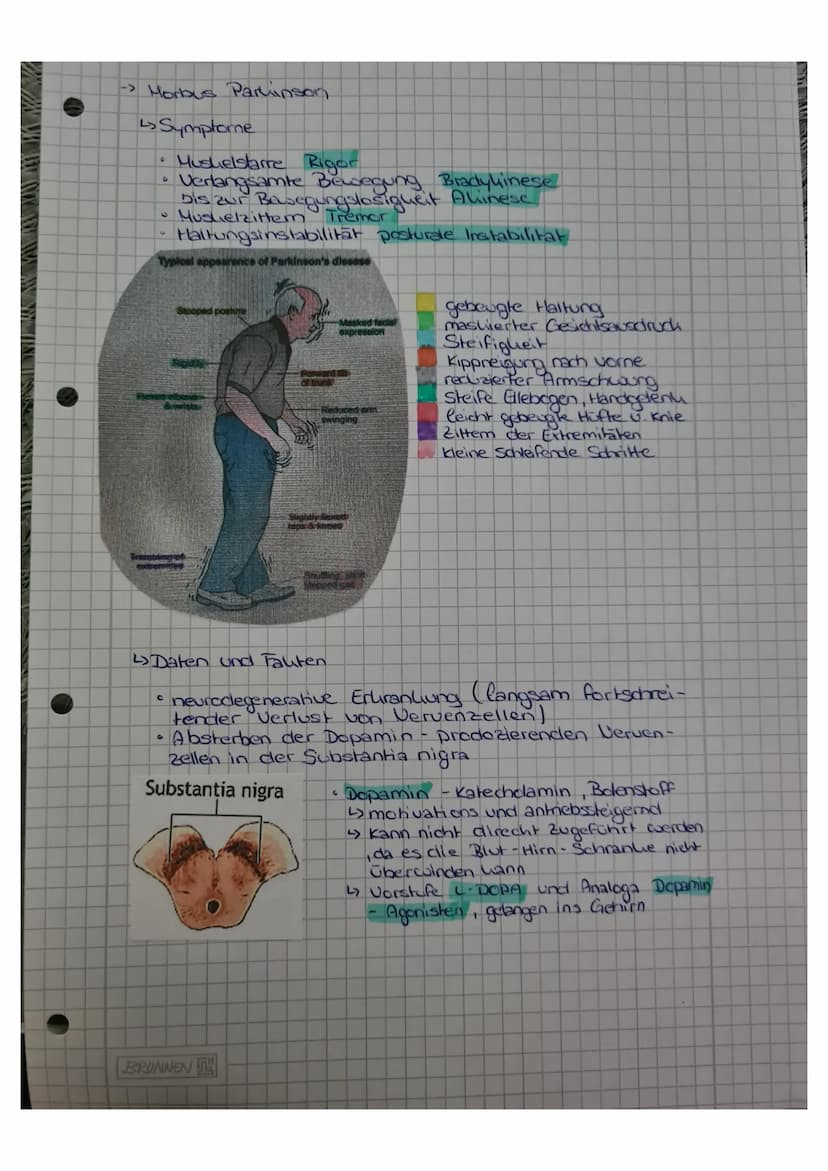 -> Morbus Parkinson
↳ Symptome
• Muskelstarre Rigor
• Verlangsamte Bewegung Bradykinese
bis zur Bewegungslosigkeit Akinese
• Muskelzittern Tremor
• Haltungsinstabilität posturale Instabilität
Typical appearance of Parkinson's disease
Stooped posture
Masked facial
expression
Rigidity
Forward tilt
of trunk
Flexed elbows
& wrists
Reduced arm
swinging
Slightly flexed
hips & knees
Trembling of
extremities
Shuffling, short
stepped gait
gebeugte Haltung
maskierter Gesichtsausdruck
Steifigkeit
Kippneigung nach vorne
reduzierter Armschwung
Steife Ellebogen, Handgelenk
leicht gebeugte Hüfte u. Knie
Zittern der Extremitäten
kleine schleifende Schritte
↳ Daten und Fakten
• neurodegenerative Erkrankung (langsam fortschrei-
tender Verlust von Nervenzellen)
• Absterben der Dopamin - prodozierenden Nerven-
zellen in der Substantia nigra
Substantia nigra
• Dopamin - Katecholamin, Botenstoff
↳ motivations und antriebssteigernd
↳ Kann nicht direkt zugeführt werden
, da es die Blut-Hirn-Schranke nicht
überwinden kann
↳ Vorstufe L-DOPA und Analoga Dopamin
- Agonisten, gelangen ins Gehirn
BRUNNEN